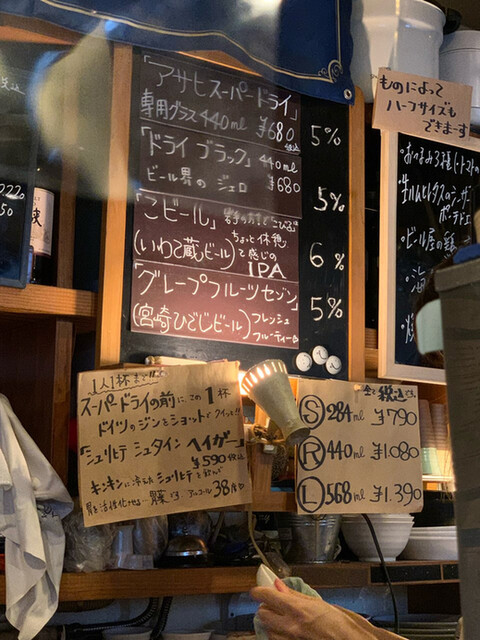 「アサヒスーパードライ」
専用グラス440ml ¥680 税込
5%
「ドライブラック」440ml
ビール界のジェロ ¥680
5%
「こビール」岩手の方言で"こびる"
ちょっと休憩
(いわて蔵ビール)て感じの
IPA
6%
「グレープフルーツセゾン」
(宮崎ひでじビール)フレッシュ
フルーティー
5%
ものによって
ハーフサイズも
できまーす
・おつまみ3種
・ビール屋の
1人1杯まで!!
スーパードライの前にこの1杯
ドイツのジンをショットでクイッと!!
「シュリヒテ シュタイン ヘイガー」
¥590 税込
キンキンに冷えたシュリヒテを飲んで
胃を活性化させる一杯です。アルコール38度
全て税込です。
Ⓢ 284ml ¥790
Ⓡ 440ml ¥1.080
Ⓛ 568ml ¥1.390